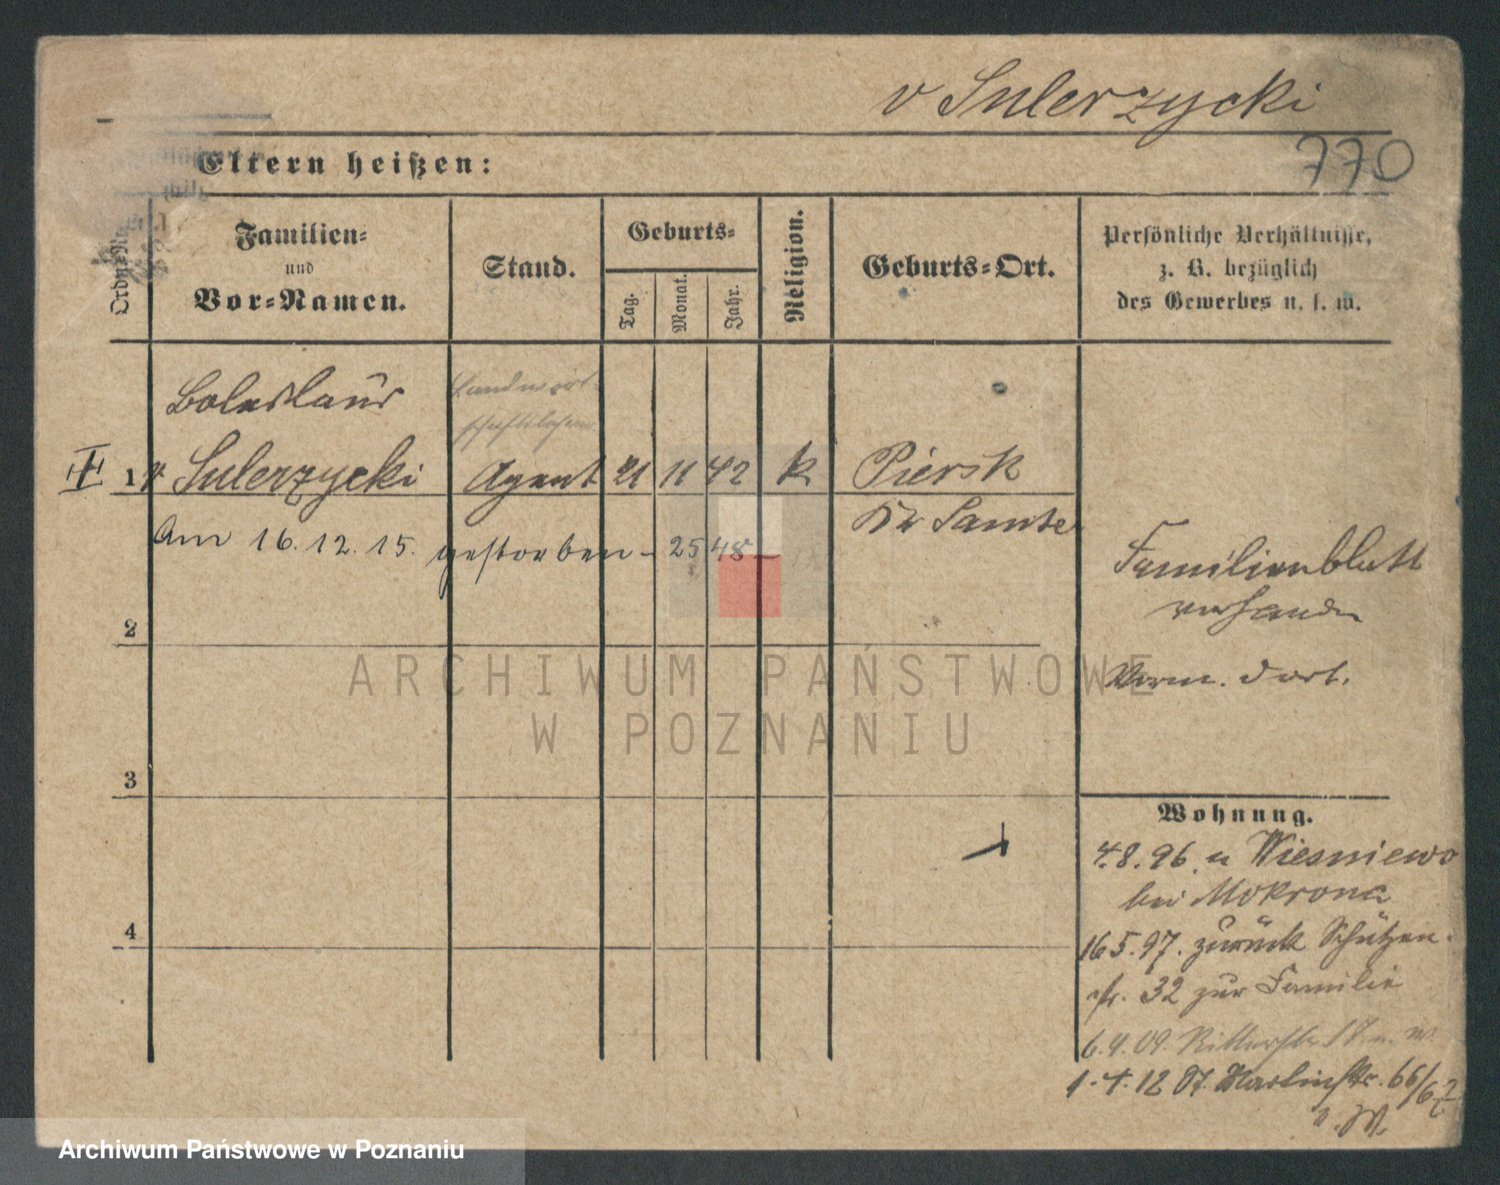 v Sulerzycki
770
Eltern heißen:
Ordn.-Nr.
Familien-
und
Vor-Namen.
Stand.
Geburts-
Tag.
Monat.
Jahr.
Religion.
Geburts-Ort.
Persönliche Verhältnisse,
z. B. bezüglich
des Gewerbes u. s. w.
Boleslaus
Landwirt-
schaftlicher
1 v Sulerzycki Agent 21 11 42 k Piersk
Kr Samter
Am 16.12.15. gestorben - 25 48
Familienblatt
vorhanden
Vorm. dort.
2
3
4
Wohnung.
4.8.96. n Wiesniewo
bei Mokrona
16.5.97. zurück Schützen-
str. 32 zur Familie
6.4.09. Ritterstr. 17 u. W
1.4.12 St. Martinstr. 66/67
u. W.
ARCHIWUM PAŃSTWOWE
W POZNANIU
Archiwum Państwowe w Poznaniu